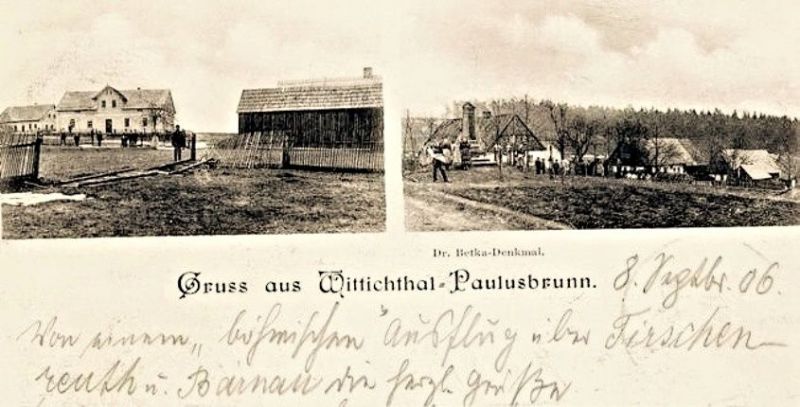 Dr. Betka-Denkmal.
Gruss aus Wittichthal-Paulusbrunn. 8. Septbr. 06.
Von einem „böhmischen" Ausflug über Tirschen-
reuth u. Bärnau die herzl. Grüße